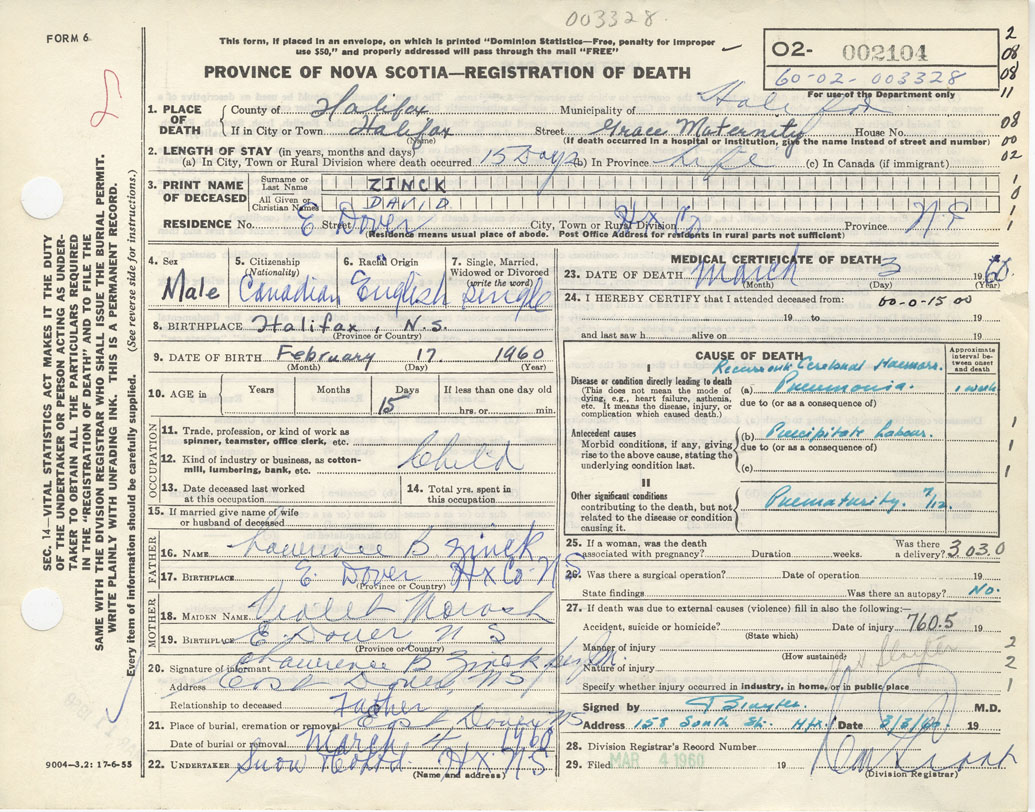 003328
FORM 6
This form, if placed in an envelope, on which is printed "Dominion Statistics—Free, penalty for improper
use $50," and properly addressed will pass through the mail "FREE"
PROVINCE OF NOVA SCOTIA—REGISTRATION OF DEATH
O2- 002104
60-02-003328
For use of the Department only
2
08
08
11
08
00
02
1. PLACE OF DEATH
County of Halifax Municipality of Halifax
If in City or Town Halifax Street Grace Maternity House No.
(Name) (If death occurred in a hospital or institution, give the name instead of street and number)
2. LENGTH OF STAY (in years, months and days)
(a) In City, Town or Rural Division where death occurred 15 Days (b) In Province Life (c) In Canada (if immigrant)
3. PRINT NAME OF DECEASED
Surname or Last Name ZINCK
All Given or Christian Names DAVID
RESIDENCE No. E Dover Street City, Town or Rural Division Hx Co Province N S
(Residence means usual place of abode. Post Office Address for residents in rural parts not sufficient)
4. Sex Male
5. Citizenship (Nationality) Canadian
6. Racial Origin English
7. Single, Married, Widowed or Divorced (write the word) Single
8. BIRTHPLACE Halifax, N.S.
(Province or Country)
9. DATE OF BIRTH February 17. 1960
(Month) (Day) (Year)
10. AGE in Years Months Days 15 If less than one day old hrs. or min.
OCCUPATION
11. Trade, profession, or kind of work as spinner, teamster, office clerk, etc.
12. Kind of industry or business, as cotton-mill, lumbering, bank, etc. Child
13. Date deceased last worked at this occupation
14. Total yrs. spent in this occupation
15. If married give name of wife or husband of deceased
FATHER
16. NAME Lawrence B Zinck
17. BIRTHPLACE E. Dover Hx Co N S
(Province or Country)
MOTHER
18. MAIDEN NAME Violet Morash
19. BIRTHPLACE E. Dover N S
(Province or Country)
20. Signature of informant Lawrence B Zinck
Address East Dover, NS
Relationship to deceased Father
21. Place of burial, cremation or removal East Dover NS
Date of burial or removal March 4 1960
22. UNDERTAKER Snow Co Ltd. Hx NS
(Name and address)
9004—3.2: 17-6-55
MEDICAL CERTIFICATE OF DEATH
23. DATE OF DEATH March 3 1960
(Month) (Day) (Year)
24. I HEREBY CERTIFY that I attended deceased from: 00-0-15 00
19 to 19
and last saw h alive on 19
CAUSE OF DEATH
Approximate interval between onset and death
I
Disease or condition directly leading to death
(This does not mean the mode of dying, e.g., heart failure, asthenia, etc. It means the disease, injury, or complication which caused death.)
Recurrent Cerebral Haemorr.
(a) Pneumonia. 1 week
due to (or as a consequence of)
Antecedent causes
Morbid conditions, if any, giving rise to the above cause, stating the underlying condition last.
(b) Precipitate Labour.
due to (or as a consequence of)
(c)
II
Other significant conditions contributing to the death, but not related to the disease or condition causing it.
Prematurity. 7/12.
25. If a woman, was the death associated with pregnancy? Duration weeks. Was there a delivery? 3030
26. Was there a surgical operation? Date of operation 19
State findings Was there an autopsy? No.
27. If death was due to external causes (violence) fill in also the following:—
Accident, suicide or homicide? Date of injury 760.5 19
(State which)
Manner of injury
(How sustained)
Nature of injury
Specify whether injury occurred in industry, in home, or in public place
Signed by B Slayter M.D.
Address 158 South St. Hfx. Date 3/3/60 19
28. Division Registrar's Record Number
29. Filed MAR 4 1960 19
(Division Registrar)
SEC. 14—VITAL STATISTICS ACT MAKES IT THE DUTY
OF THE UNDERTAKER OR PERSON ACTING AS UNDER-
TAKER TO OBTAIN ALL THE PARTICULARS REQUIRED
IN THE "REGISTRATION OF DEATH" AND TO FILE THE
SAME WITH THE DIVISION REGISTRAR WHO SHALL ISSUE THE BURIAL PERMIT.
WRITE PLAINLY WITH UNFADING INK. THIS IS A PERMANENT RECORD.
Every item of information should be carefully supplied. (See reverse side for instructions.)